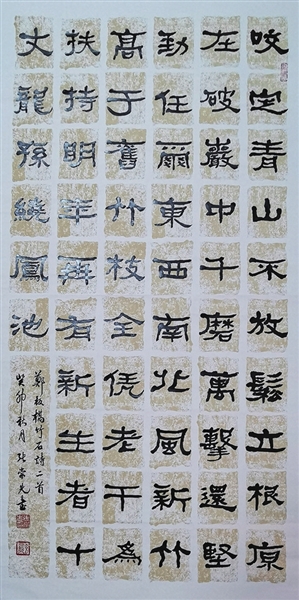 咬定青山不放鬆立根原
在破巖中千磨萬擊還堅
勁任爾東西南北風新竹
高于舊竹枝全凭老干為
扶持明年再有新生者十
丈龍孫繞鳳池
鄭板橋竹石詩二首
癸卯秋月